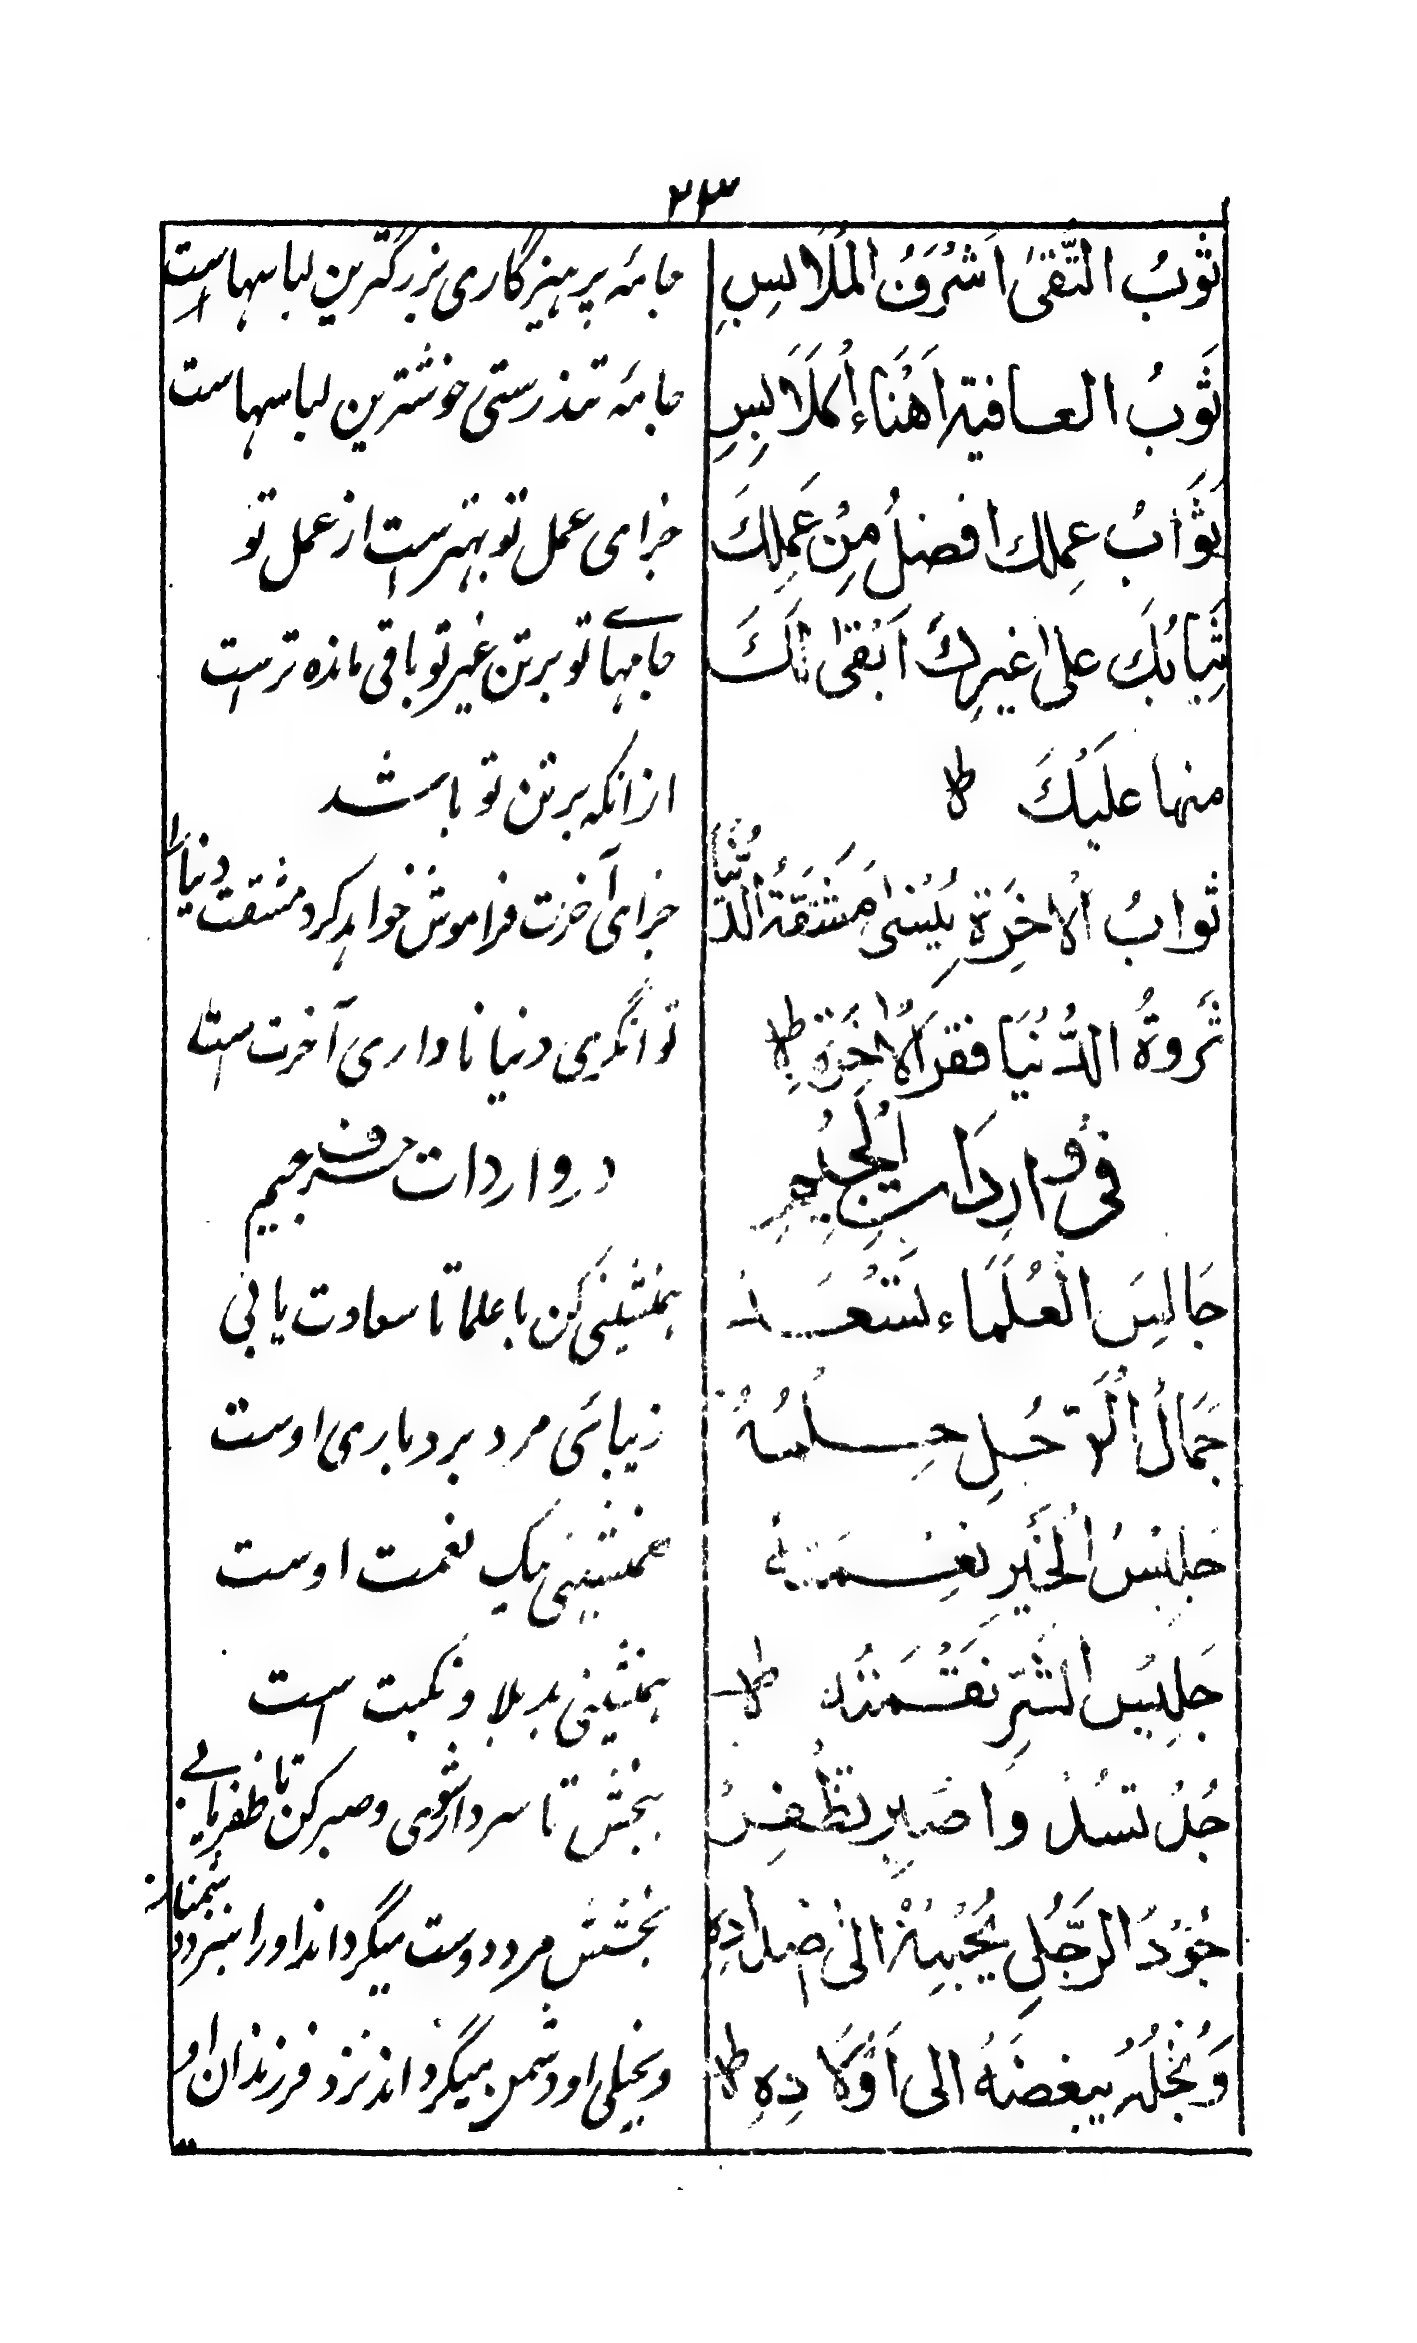 ۲۳
ثَوبُ التُّقیٰ اَشْرَفُ المُلَابِسِ جامۂ پرہیزگاری بزرگترین لباسہاست
ثَوبُ العافیۃِ اَهْنَاءُ المَلَابِسِ جامۂ تندرستی خوشترین لباسہاست
ثَوَابُ عملِک افضلُ مِنْ عَمِلِکَ جزای عمل تو بہترست از عمل تو
ثِیَابُکَ علیٰ غیرِکَ اَبْقیٰ لَکَ جامہاے تو برتن غیر تو باقی ماندہ ترست
منہا عَلَیْکَ ط ازانکہ برتن تو باشد
ثوابُ الاٰخِرَۃِ یُنْسٰی مَشَقَّۃُ الدُّنْیَا جزای آخرت فراموش خواہد کرد مشقت دنیا را
ثَروۃُ الدُّنْیَا فقرُ الْاٰخِرَۃِ ط توانگری دنیا ناداری آخرت است
فی وَارِدَاتِ الْجِیْمِ در واردات حرف جیم
جَالِسِ الْعُلَمَاءِ تَسْعَدْ ہمنشینی کن با علما تا سعادت یابی
جَمَالُ الْرَّجُلِ حِلْمُہُ زیبائی مرد بردباری اوست
جَلِیْسُ الْخَیْرِ نِعْمَۃٌ ہمنشینی نیک نعمت اوست
جَلِیْسُ الشَّرِّ نَقْمَتُہ ط ہمنشینی بد بلا و نکبت است
جُدْ تَسُدْ واصْبِرْ تَظْفِرْ ببخش تا سردار شوی و صبر کن تا ظفر یابے
جُوْدُ الرَّجُلِ یُحَبِّبُہٗ الیٰ اضدادِہِ بخشش مرد دوست میگرداند او را نزد دشمنان
وَبُخْلُہُ یبغضُہُ الی اَوْلَادِہِ ط و بخیلی او دشمن میگرداند نزد فرزندان او